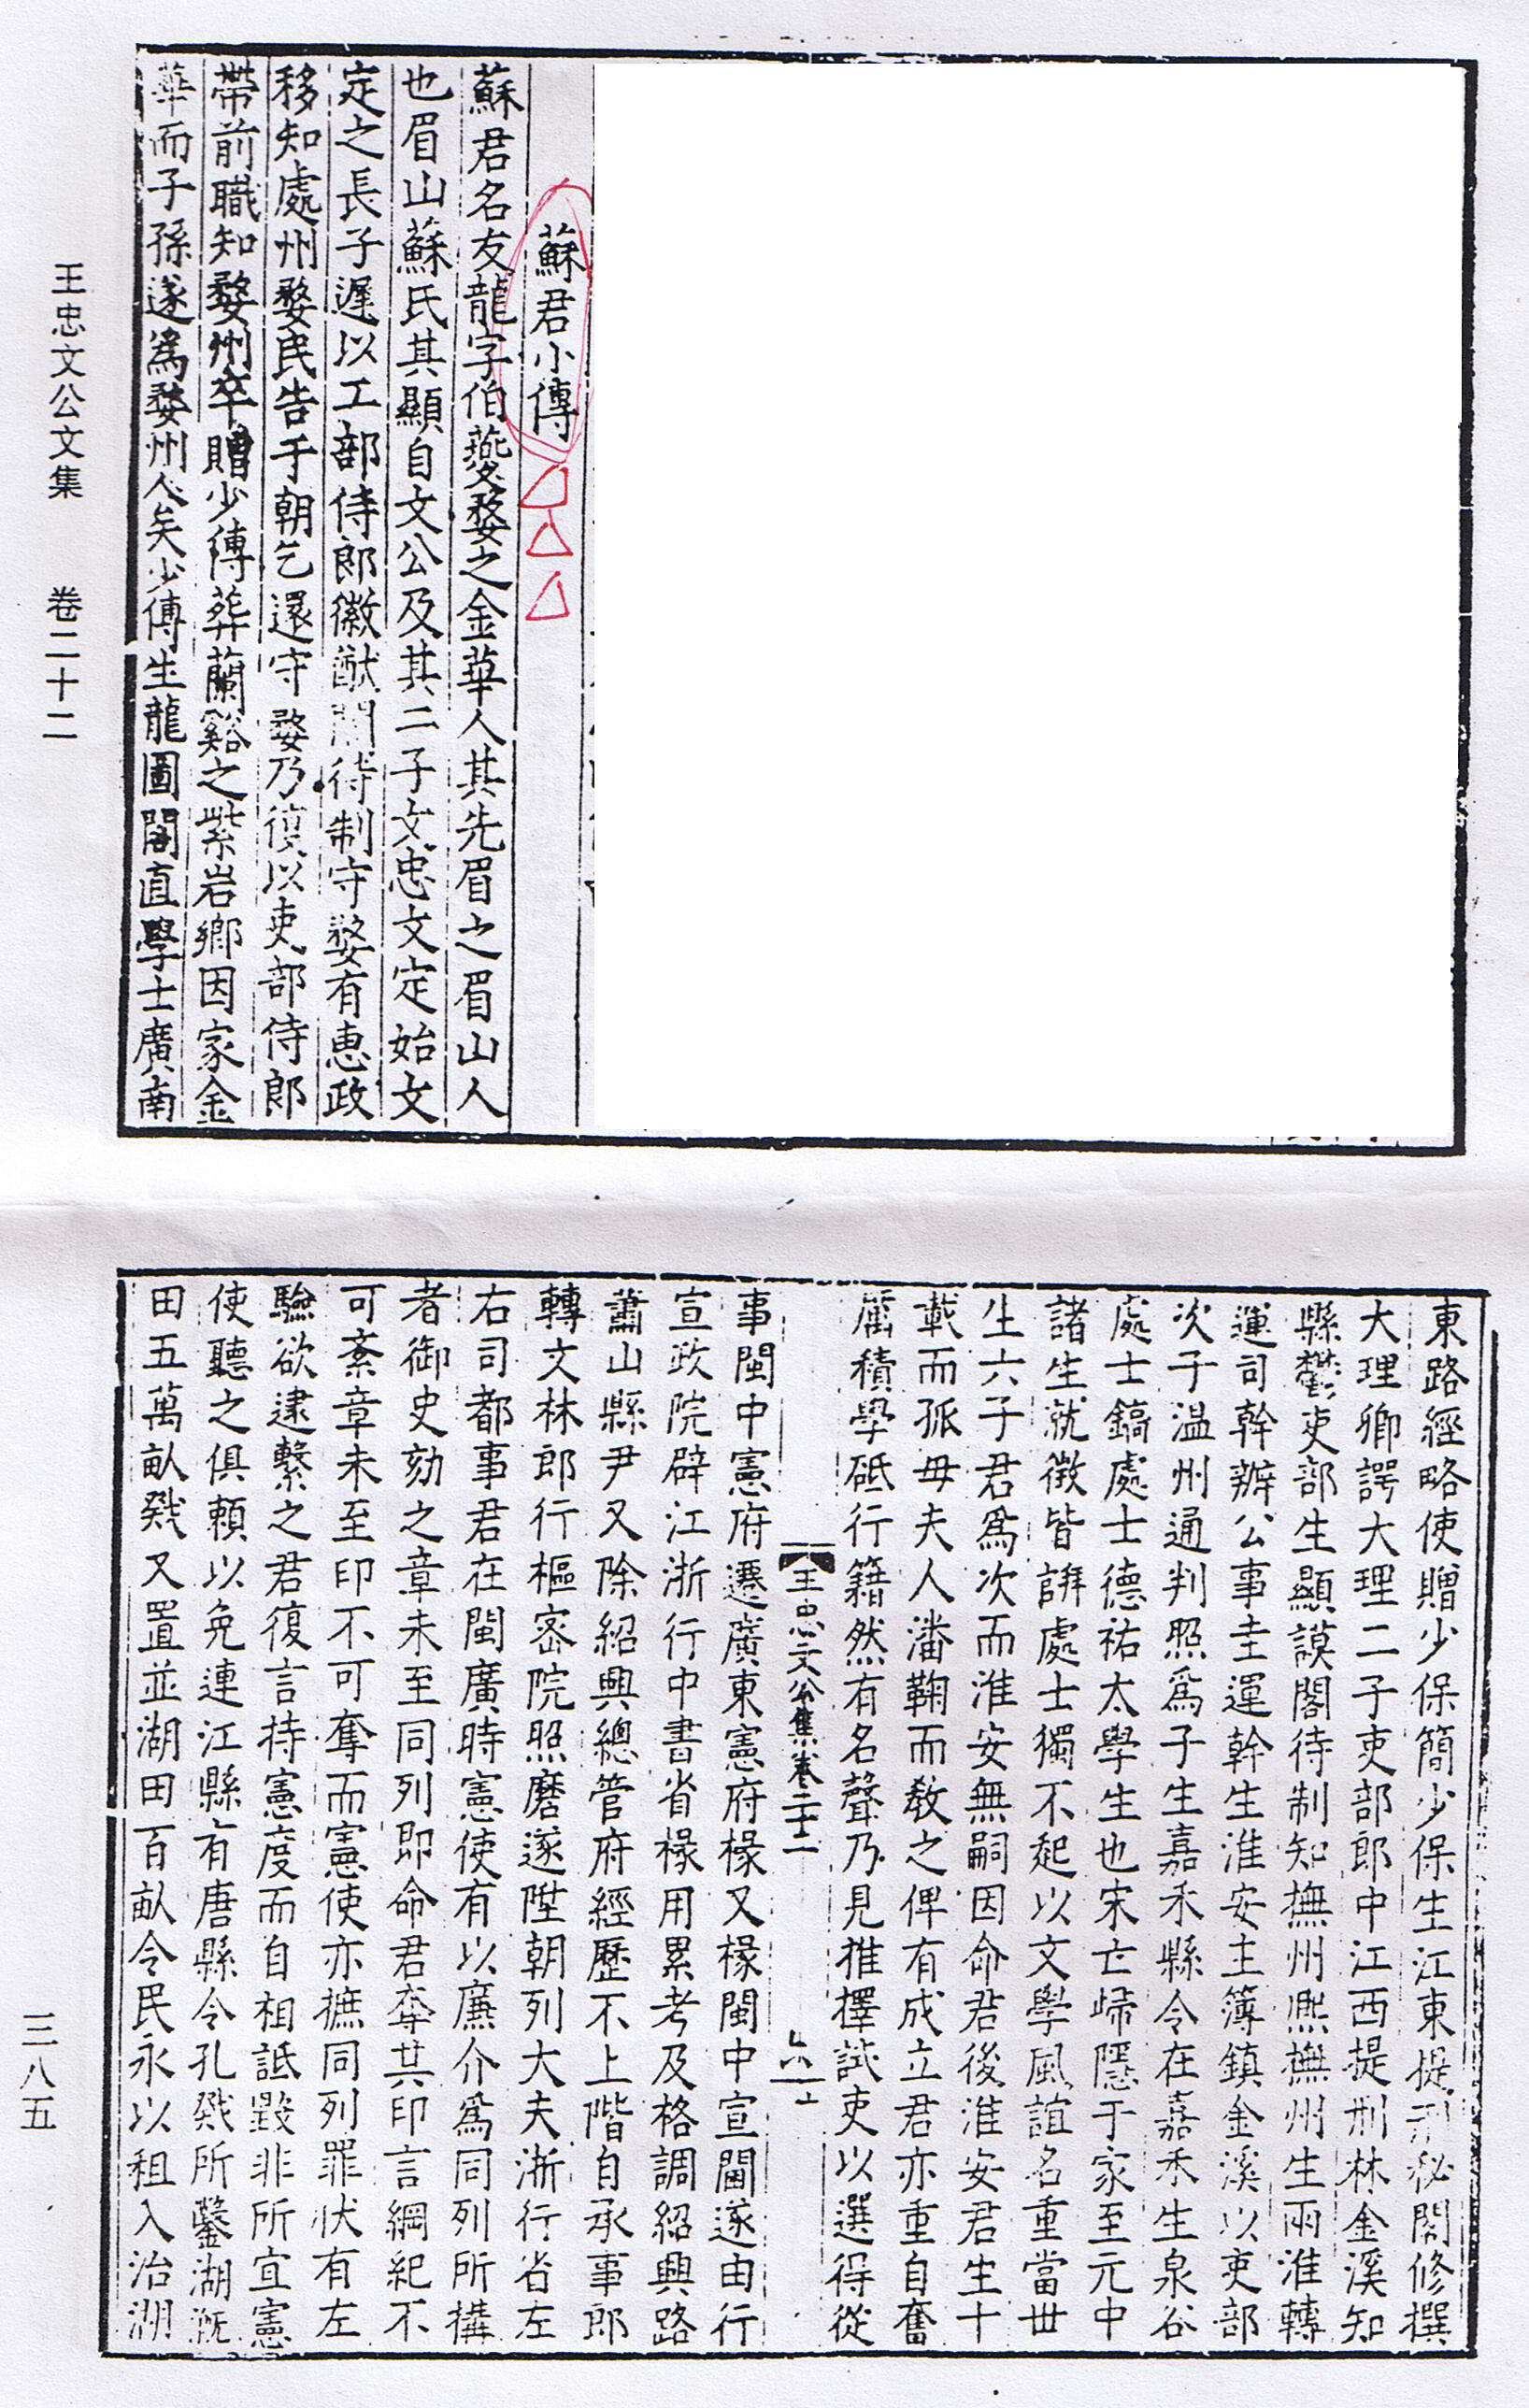 蘇君小傳
蘇君名友龍字伯夔婺之金華人其先眉之眉山人
也眉山蘇氏其顯自文公及其二子文忠文定始文
定之長子遲以工部侍郎徽猷閣待制守婺有惠政
移知處州婺民告于朝乞還守婺乃復以吏部侍郎
帶前職知婺州卒贈少傅葬蘭谿之紫岩鄉因家金
華而子孫遂爲婺州人矣少傅生龍圖閣直學士廣南
王忠文公文集 卷二十二
東路經略使贈少保簡少保生江東提刑秘閣修撰
大理卿諤大理二子吏部郎中江西提刑林金溪知
縣鬱吏部生顯謨閣待制知撫州熈撫州生兩淮轉
運司幹辦公事圭運幹生淮安主簿鎮金溪以吏部
次子溫州通判照爲子生嘉禾縣令在嘉禾生泉谷
處士鎬處士德祐太學生也宋亡歸隱于家至元中
諸生就徵皆辭處士獨不起以文學風誼名重當世
生六子君爲次而淮安無嗣因命君後淮安君生十
載而孤母夫人潘鞠而敎之俾有成立君亦重自奮
厲積學砥行籍然有名聲乃見推擇試吏以選得從
王忠文公集卷二十二 六
事閩中憲府遷廣東憲府椽又椽閩中宣閫遂由行
宣政院辟江浙行中書省椽用累考及格調紹興路
蕭山縣尹又除紹興總管府經歷不上階自承事郎
轉文林郎行樞密院照磨遂陞朝列大夫浙行省左
右司都事君在閩廣時憲使有以廉介爲同列所搆
者御史劾之章未至同列即命君奪其印言綱紀不
可紊章未至印不可奪而憲使亦摭同列罪狀有左
驗欲逮繫之君復言持憲度而自相詆毀非所宜憲
使聽之俱賴以免連江縣有唐縣令孔戣所鑿湖漑
田五萬畝戣又置並湖田百畝令民永以租入治湖
三八五